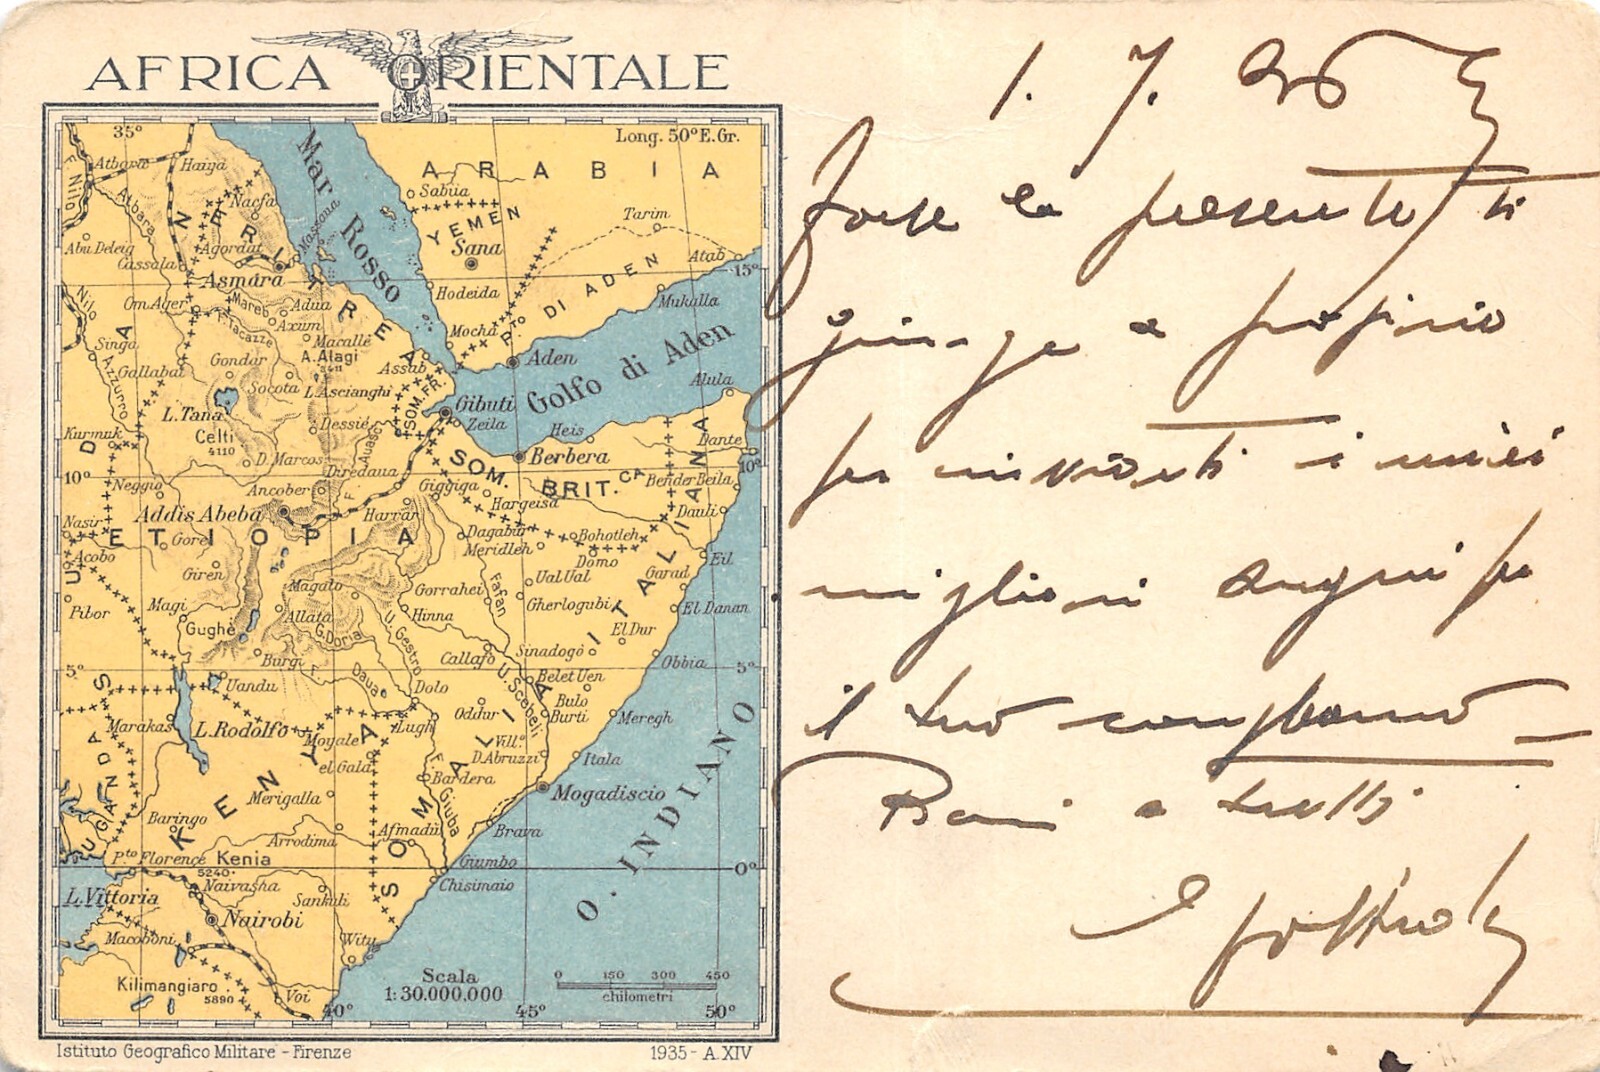 AFRICA ORIENTALE
35°
Long. 50° E. Gr.
Atbara
Haiya
ARABIA
F. Nilo
Atbara
Nacfa
Sabiia
Mar Rosso
Massaua
YEMEN
Tarim
Abu Deleig
Agordat
Sana
Cassala
Atab
15°
Asmára
ERITREA
Om Ager
Mareb
Adua
Hodeida
PTO DI ADEN
Mukalla
Nilo
F. Tacazze
Axum
Singa
Macallè
Mochá
Gallabat
Gondar
A. Alagi
3411
Aden
Azzurro
Socota
Assab
Golfo di Aden
L. Ascianghi
SOM. FR.
Alula
L. Tana
Gibuti
Celti
4110
Dessiè
Zeila
Heis
Kurmuk
F. Auasc
Dante
D. Marcos
Berbera
10°
Diredaua
SOM. BRIT.CA
10°
Neggio
Ancober
Giggiga
Bender Beila
Hargeisa
Addis Abeba
Harrar
Dauli
Nasir
ETIOPIA
Dagabur
Bohotleh
Gore
Meridleh
Acobo
Domo
Eil
Giren
Ual Ual
Garad
Magalo
Gorrahei
Fafan
Pibor
Magi
Gherlogubi
El Danan
Allata
Hinna
Gughè
G. Doria
U. Gestro
El Dur
Burgi
Callafo
Sinadogò
Obbia
5°
5°
F. Daua
Uandu
Dolo
U. Scebeli
Belet Uen
Bulo Burti
Oddur
Meregh
Marakas
L. Rodolfo
Lugh
Moyale
Vill.º D. Abruzzi
el Gala
Itala
UGANDA
KENYA
F. Giuba
Bardera
Merigalla
Mogadiscio
SOMALIA ITALIANA
O. INDIANO
Baringo
Arrodima
Afmadù
Brava
P.to Florence
Kenia
5240
Giumbo
0°
L. Vittoria
Naivasha
Chisimaio
Sankuli
Nairobi
Macoboni
Witu
Kilimangiaro
5890
Voi
Scala
1:30.000.000
0 150 300 450
chilometri
40°
45°
50°
Istituto Geografico Militare - Firenze
1935 - A. XIV
1. 7. 36
Forse la presente ti
giunge a proposito
per inviarti i miei
migliori auguri per
il tuo compleanno
Baci a tutti